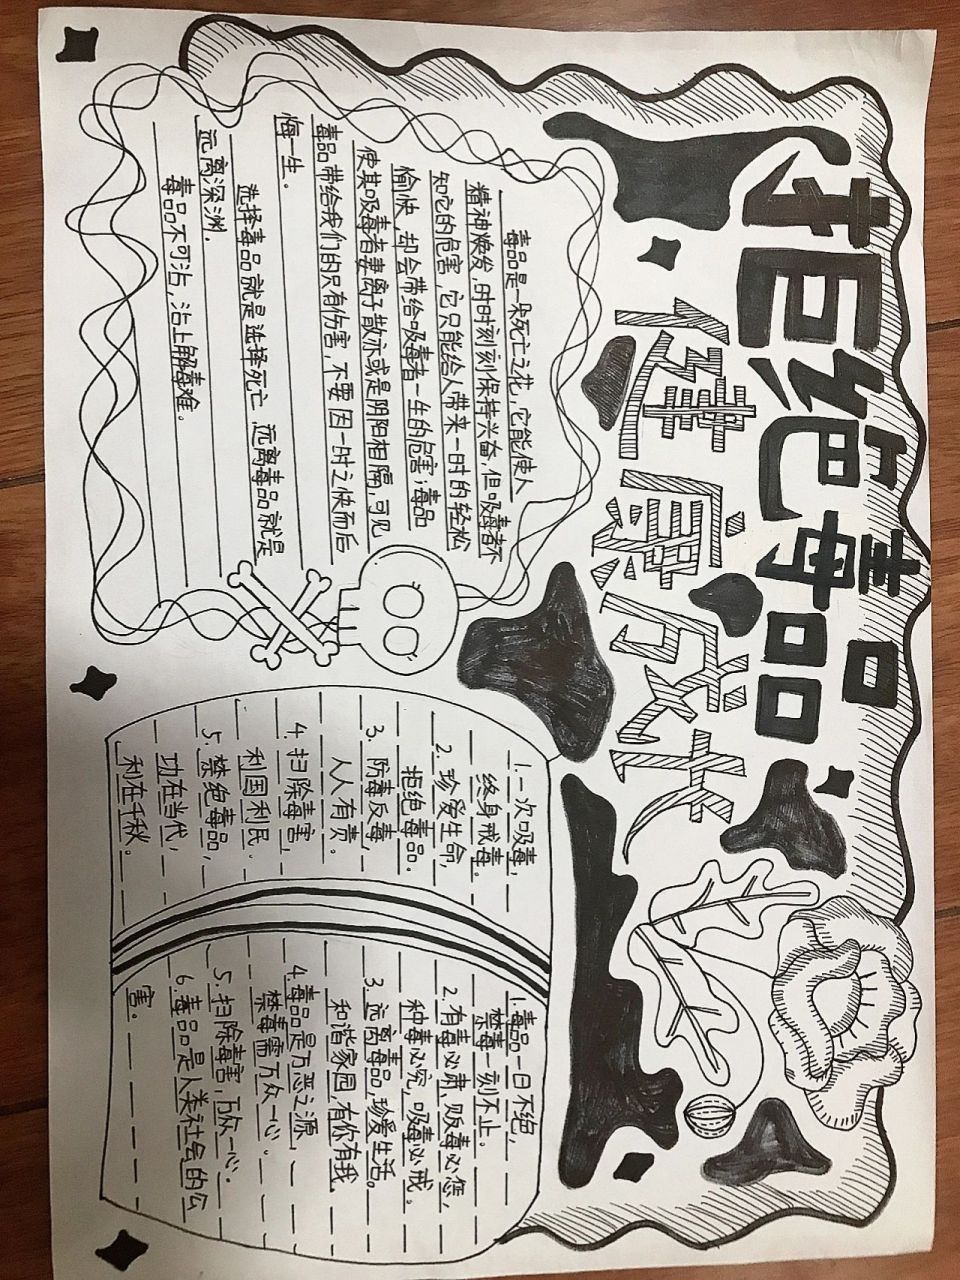 拒绝毒品
健康成长
毒品是一朵死亡之花，它能使人
精神焕发，时时刻刻保持兴奋，但吸毒者不
知它的危害，它只能给人带来一时的轻松
愉快，却会带给吸毒者一生的危害；毒品
使其吸毒者妻离子散亦或是阴阳相隔，可见
毒品带给我们的只有伤害，不要因一时之快而后
悔一生。
选择毒品就是选择死亡，远离毒品就是
远离深渊.
毒品不可沾，沾上解毒难。
1.一次吸毒，
终身戒毒。
2.珍爱生命，
拒绝毒品.
3.防毒反毒，
人人有责。
4.扫除毒害，
利国利民.
5.禁绝毒品，
功在当代，
利在千秋。
1.毒品一日不绝，
禁毒一刻不止.
2.有毒必肃，贩毒必惩，
种毒必究，吸毒必戒。
3.远离毒品，珍爱生活。
和谐家园，有你有我.
4.毒品是万恶之源，
禁毒需万众一心.
5.扫除毒害，万众一心.
6.毒品是人类社会的公
害。